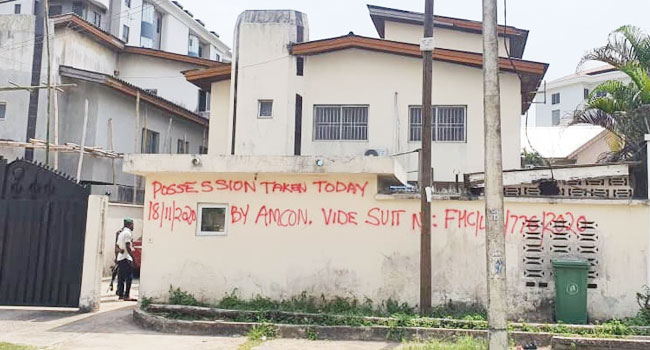 POSSESSION TAKEN TODAY
18/11/2020 BY AMCON. VIDE SUIT N : FHC/L /776/2020